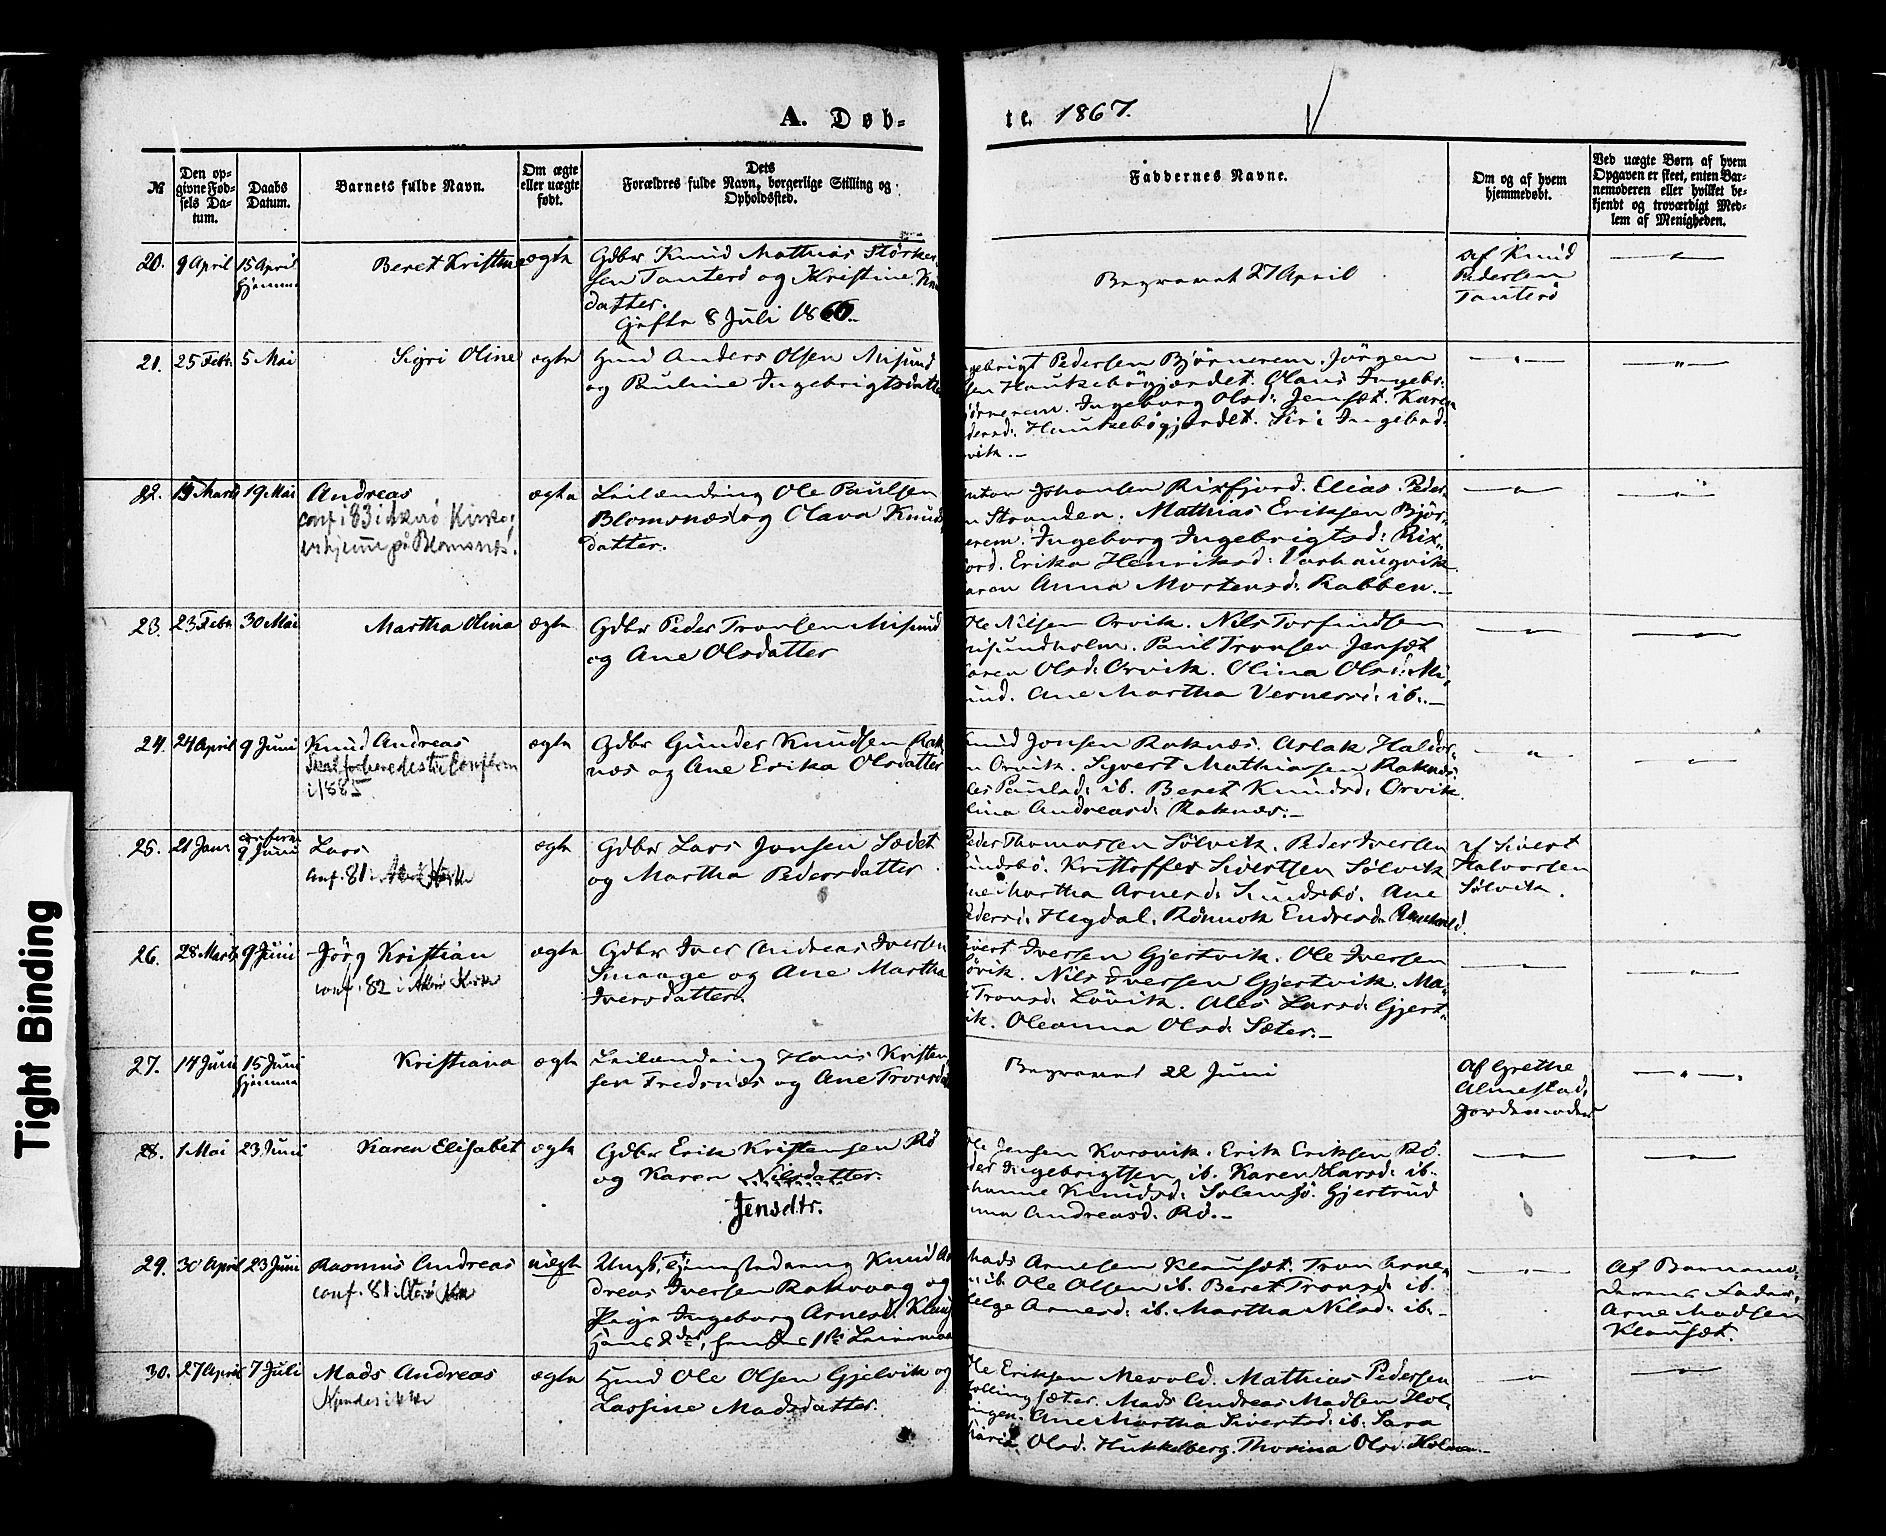 A. Døb-
te. 1867.
№
Den op-
givne Fød-
sels Da-
tum.
Daabs
Datum.
Barnets fulde Navn.
Om ægte
eller uægte
født.
Dets
Forældres fulde Navn, borgerlige Stilling og
Opholdssted.
Faddernes Navne.
Om og af hvem
hjemmedøbt.
Ved uægte Børn af hvem
Opgaven er skeet, enten Bar-
nemoderen eller hvilket be-
kjendt og troværdigt Med-
lem af Menigheden.
20. 9 April 15 April
hjemme
Beret Kristine ægte
Gdbr Knud Mathias Størker
sen Tanterø og Kristine
datter.
Gifte 8 Juli 1860
Begravet 27 April
af Knud
Pedersen
Tanterø
21. 25 Febr. 5 Mai Sigri Oline ægte
Hmd Anders Olsen Misund
og Pauline Ingebrigtsdatter
Pedersen Bjørnerem. Jørgen
Haukebøgjærdet. Olaus Ingebr.
Ingeborg Olsd: Jensæt. Karen
Haukebøgjerdet. Siri
22. 19 Mai Andreas ægte
conf i 83 i Akerø Kirke;
er hjemme på Blomsnæs.
Leilænding Ole Paulsen
Blomsnæs og Olava Knuds
datter.
Johansen Rixfjord. Elias Peder-
n Stranden. Mathias Eriksen Bjør-
erem. Ingeborg Ingebrigtsd: Rix-
ord. Erika Henriksd: Varhaugvik
aren Anna Mortensd: Rabben.
23. 23 Febr 30 Mai Martha Olina ægte
Gdbr Peder Tronsen Misund
og Ane Olsdatter
Ole Nilsen Orvik. Nils Torfindsen
isundholm. Paul Tronsen Jensæt
aren Olsd: Orvik. Olina Olsd: Mi-
und. Ane Martha Vernersd: ib.
24. 24 April 9 Juni Knud Andreas ægte
Skal forberedes til Confirm
i 1885
Gdbr Gunder Knudsen Rak
næs og Ane Erika Olsdatter
Knud Jonsen Raknæs. Aslak Haldor-
n Orvik. Syvert Mathiasen Raknæs
Paulsd: ib. Beret Knudsd: Orvik.
lina Andreasd: Raknæs.
25. 21 Janr 9 Juni Lars ægte
conf. 81 i
Gdbr Lars Jonsen Sædet
og Martha Pedersdatter
Peder Thomassen Sølvik. Peder Iversen
undsbø. Kristoffer Sivertsen Sølvik
ne Martha Arnesd: Sundsbø. Ane
edersd: Hegdal. Rønnok Endresd:
af Sivert
Halvorsen
Sølvik.
26. 28 Marts 9 Juni Jørg Kristian ægte
conf. 82 i Akerø Kirke
Gdbr Iver Andreas Iversen
Smaage og Ane Martha
Iversdatter.
ivert Iversen Gjertvik. Ole Iversen
øvik. Nils Iversen Gjertvik. Ma-
Tronsd: Løvik. Ales Larsd: Gjert-
ik. Oleanna Olsd: Sæter.
27. 14 Juni 15 Juni
hjemme
Kristiana ægte
Leilænding Hans Kristen
sen Frednæs og Ane Tronsd
Begravet 22 Juni
Af Grethe
Almestad,
Jordemoder
28. 1 Mai 23 Juni Karen Elisabet ægte
Gdbr Erik Kristensen Rø
og Karen Nilsdatter.
Jensdtr.
Ole Jensen Korsvik. Erik Eriksen Rø.
der Ingebrigtsen ib. Karen Larsd: ib.
hanne Knudsd: Solemsø. Gjertrud
nna Andreasd: Rø.
29. 30 April 23 Juni Rasmus Andreas uægte
conf. 81
Ungk, Knud An
dreas Iversen Rakvaag og
Pige Ingeborg Arnesd:
Hans 2det, hendes 1ste Leiermaal
Mads Arnesen Klauset. Tron Arne-
n ib. Ole Olsen ib. Beret Tronsd: ib.
elge Arnesd: ib. Martha Nilsd: ib.
Af Barnemo-
derens Fader,
Arne Madsen
Klausæt.
30. 27 April 7 Juli Mads Andreas ægte
Kjendes ikke
Hmd Ole Olsen Gjelvik og
Lassine Madsdatter.
Ole Eriksen Mevold. Mathias Pedersen
ollingsæter. Mads Andreas Madsen Hol-
ingen. Ane Martha Sivertsd: ib. Sara
aria Olsd: Hukkelberg. Thorina Olsd:
Tight Binding